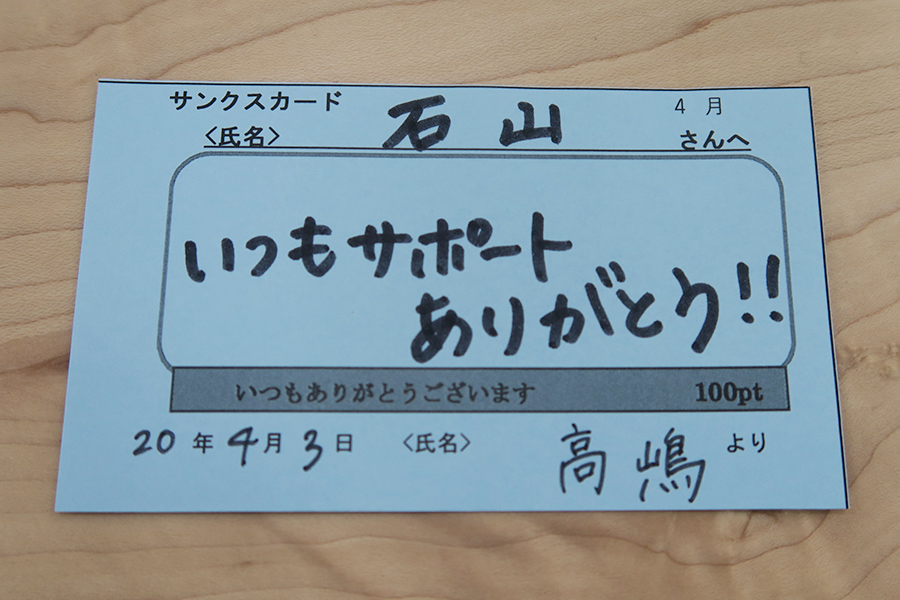 サンクスカード 4月
<氏名> 石山 さんへ
いつもサポート
ありがとう!!
いつもありがとうございます 100pt
20年4月3日 <氏名> 高嶋 より